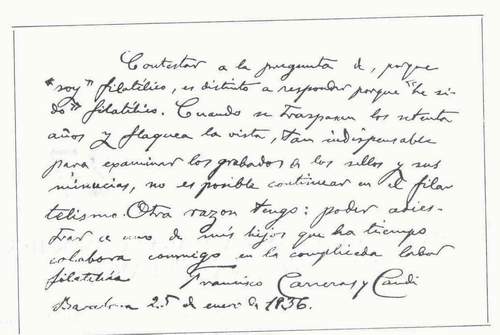 Contestar a la pregunta de, porque
"soy" filatélico, es distinto a responder porque "he si-
do" filatélico. Cuando se traspasan los setenta
años y flaquea la vista, tan indispensable
para examinar los grabados en los sellos y sus
minucias, no es posible continuar en el filar
telismo. Otra razon tengo: poder adies-
trar a uno de mis hijos que ha tiempo
colabora conmigo en la complicada labor
filatélica Francisco Carreras y Candi
Barcelona 25 de enero de 1936.